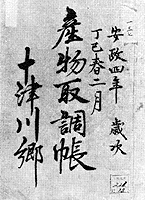 安政四年 歳次
丁巳春二月
産物取調帳
十津川郷